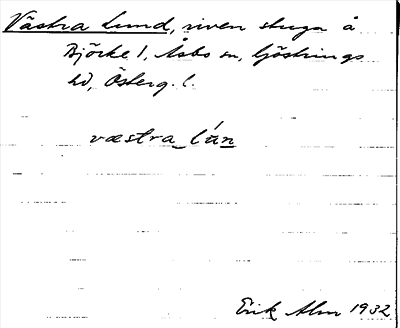 Västra Lund, riven stuga å
Björke 1, Åsbo sn, Göstrings
hd, Österg. l.
væstra lún
Erik Alm 1932